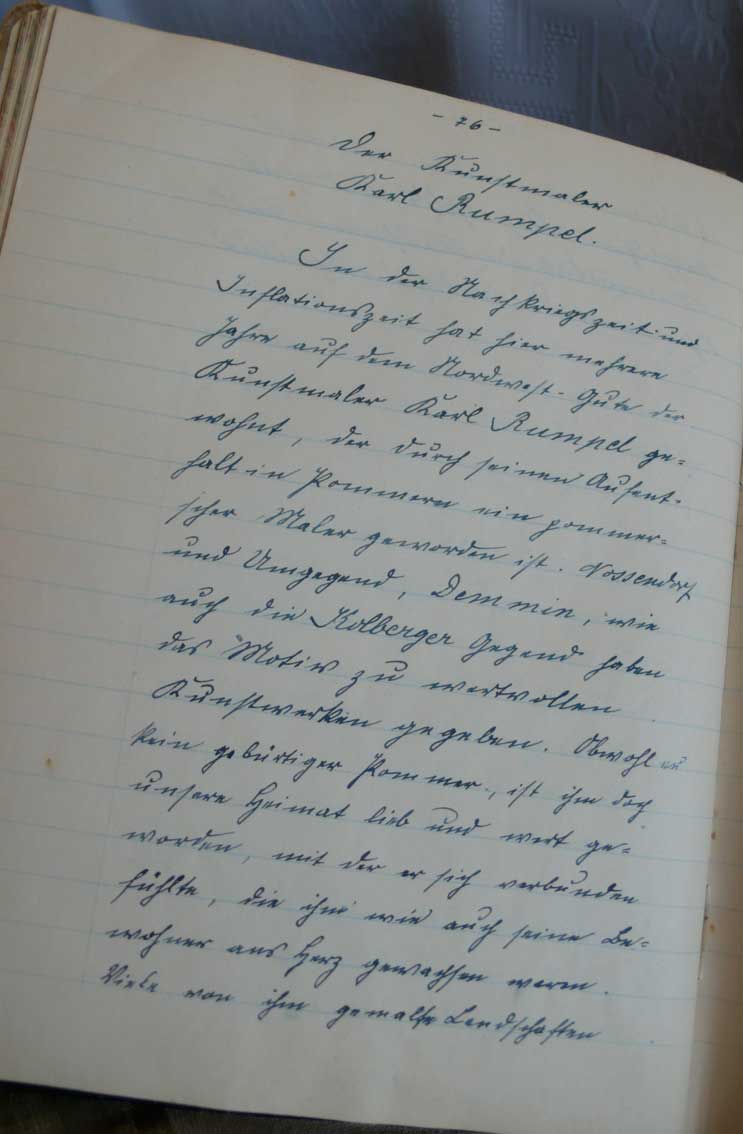 - 76 -
Der Kunstmaler
Karl Rumpel.
In der Nachkriegszeit und
Inflationszeit hat hier mehrere
Jahre auf dem Nordwest-Gute der
Kunstmaler Karl Rumpel ge=
wohnt, der durch seinen Aufent-
halt in Pommern ein pommer=
scher Maler geworden ist. Nossendorf
und Umgegend, Demmin, wie
auch die Kolberger Gegend haben
das Motiv zu wertvollen
Kunstwerken gegeben. Obwohl er
kein gebürtiger Pommer, ist ihm doch
unsere Heimat lieb und wert ge=
worden, mit der er sich verbunden
fühlte, die ihm wie auch seine Be=
wohner ans Herz gewachsen waren.
Viele von ihm gemalte Landschaften